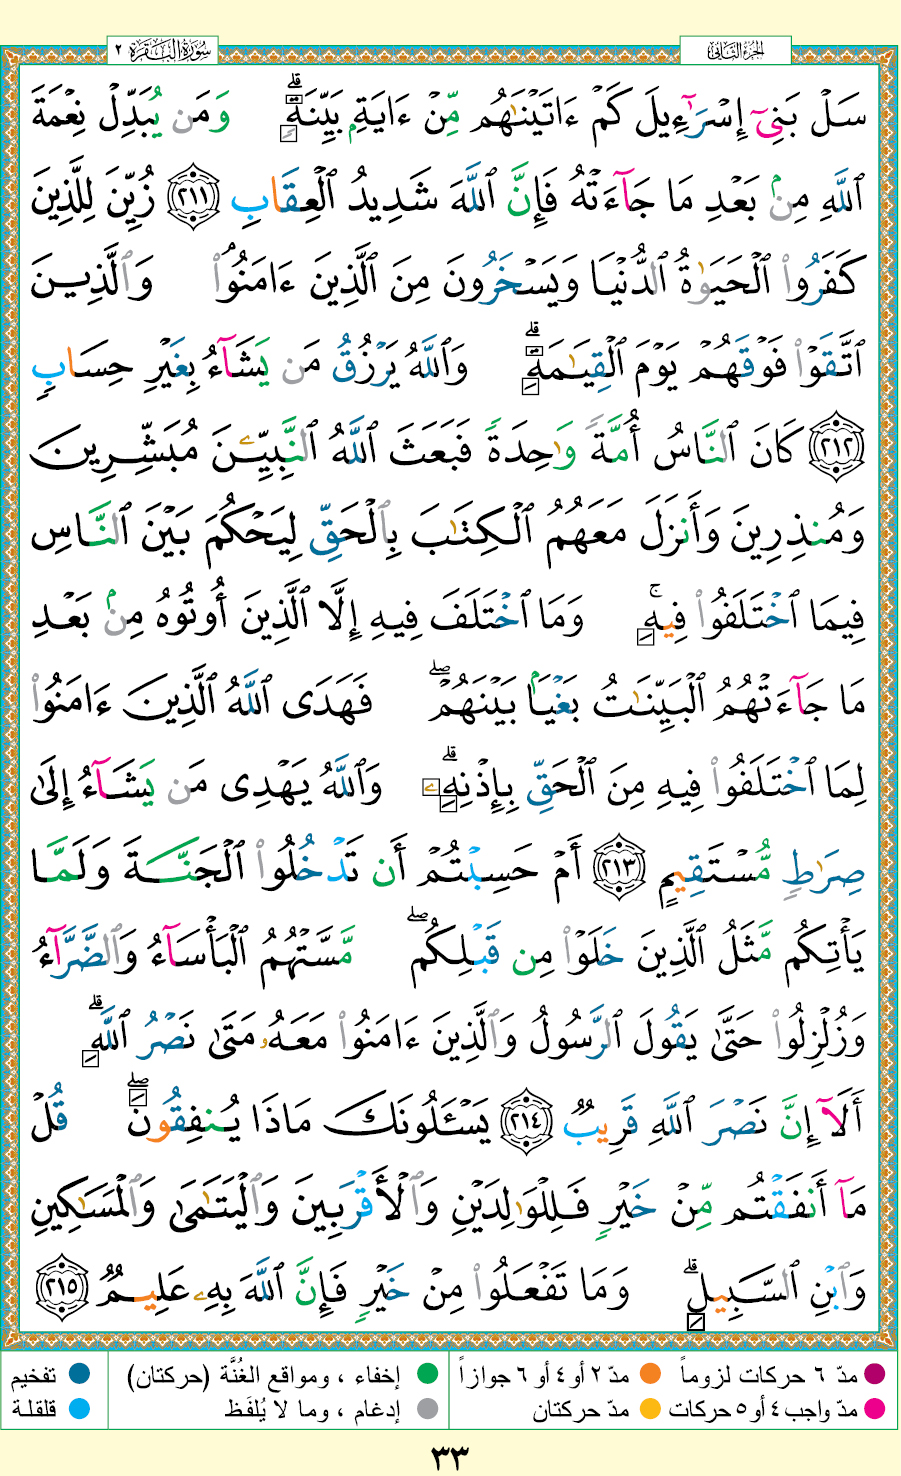 الجزء الثاني
سورة البقرة ٢
سَلۡ بَنِيٓ إِسۡرَٰٓءِيلَ كَمۡ ءَاتَيۡنَٰهُم مِّنۡ ءَايَةِۭ بَيِّنَةٖۗ وَمَن يُبَدِّلۡ نِعۡمَةَ
ٱللَّهِ مِنۢ بَعۡدِ مَا جَآءَتۡهُ فَإِنَّ ٱللَّهَ شَدِيدُ ٱلۡعِقَابِ ٢١١ زُيِّنَ لِلَّذِينَ
كَفَرُواْ ٱلۡحَيَوٰةُ ٱلدُّنۡيَا وَيَسۡخَرُونَ مِنَ ٱلَّذِينَ ءَامَنُواْۘ وَٱلَّذِينَ
ٱتَّقَوۡاْ فَوۡقَهُمۡ يَوۡمَ ٱلۡقِيَٰمَةِۗ وَٱللَّهُ يَرۡزُقُ مَن يَشَآءُ بِغَيۡرِ حِسَابٖ
٢١٢ كَانَ ٱلنَّاسُ أُمَّةٗ وَٰحِدَةٗ فَبَعَثَ ٱللَّهُ ٱلنَّبِيِّـۧنَ مُبَشِّرِينَ
وَمُنذِرِينَ وَأَنزَلَ مَعَهُمُ ٱلۡكِتَٰبَ بِٱلۡحَقِّ لِيَحۡكُمَ بَيۡنَ ٱلنَّاسِ
فِيمَا ٱخۡتَلَفُواْ فِيهِۚ وَمَا ٱخۡتَلَفَ فِيهِ إِلَّا ٱلَّذِينَ أُوتُوهُ مِنۢ بَعۡدِ
مَا جَآءَتۡهُمُ ٱلۡبَيِّنَٰتُ بَغۡيَۢا بَيۡنَهُمۡۖ فَهَدَى ٱللَّهُ ٱلَّذِينَ ءَامَنُواْ
لِمَا ٱخۡتَلَفُواْ فِيهِ مِنَ ٱلۡحَقِّ بِإِذۡنِهِۦۗ وَٱللَّهُ يَهۡدِي مَن يَشَآءُ إِلَىٰ
صِرَٰطٖ مُّسۡتَقِيمٍ ٢١٣ أَمۡ حَسِبۡتُمۡ أَن تَدۡخُلُواْ ٱلۡجَنَّةَ وَلَمَّا
يَأۡتِكُم مَّثَلُ ٱلَّذِينَ خَلَوۡاْ مِن قَبۡلِكُمۖ مَّسَّتۡهُمُ ٱلۡبَأۡسَآءُ وَٱلضَّرَّآءُ
وَزُلۡزِلُواْ حَتَّىٰ يَقُولَ ٱلرَّسُولُ وَٱلَّذِينَ ءَامَنُواْ مَعَهُۥ مَتَىٰ نَصۡرُ ٱللَّهِۗ
أَلَآ إِنَّ نَصۡرَ ٱللَّهِ قَرِيبٞ ٢١٤ يَسۡـَٔلُونَكَ مَاذَا يُنفِقُونَۖ قُلۡ
مَآ أَنفَقۡتُم مِّنۡ خَيۡرٖ فَلِلۡوَٰلِدَيۡنِ وَٱلۡأَقۡرَبِينَ وَٱلۡيَتَٰمَىٰ وَٱلۡمَسَٰكِينِ
وَٱبۡنِ ٱلسَّبِيلِۗ وَمَا تَفۡعَلُواْ مِنۡ خَيۡرٖ فَإِنَّ ٱللَّهَ بِهِۦ عَلِيمٞ ٢١٥
مدّ ٦ حركات لزوماً
مدّ ٢ أو ٤ أو ٦ جوازاً
إخفاء ، ومواقع الغُنَّة (حركتان)
تفخيم
مدّ واجب ٤ أو ٥ حركات
مدّ حركتان
إدغام ، وما لا يُلفَظ
قلقلة
٣٣